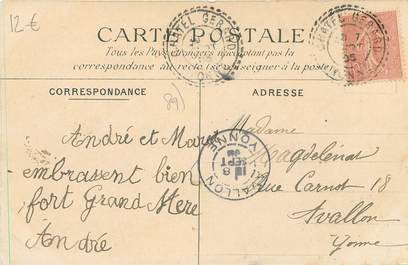 12 €
CHATEL GERARD
CHATEL GERARD
CARTE POSTALE
Tous les Pays étrangers n'acceptant pas la
correspondance au recto se renseigner à la poste
CORRESPONDANCE
89)
ADRESSE
André et
embrassent bien
fort Grand Mère
André
AVALLON
YONNE
8
SEPT
Madame
Magdelénat
Rue Carnot 18
Avallon
Yonne